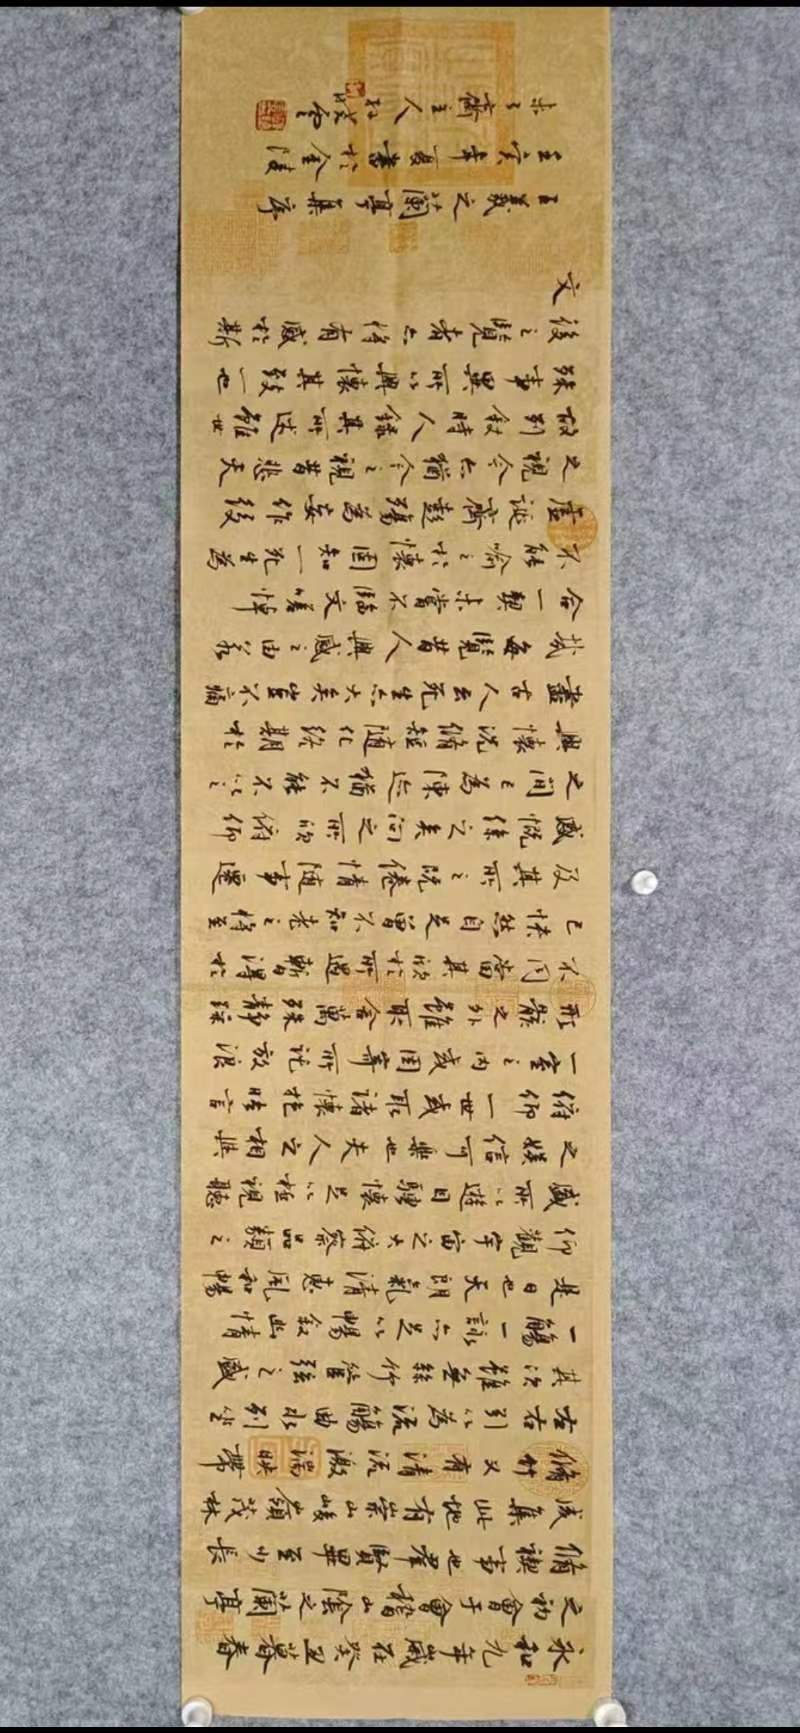 永和九年歲在癸丑暮春
之初會于會稽山陰之蘭亭
脩禊事也羣賢畢至少長
咸集此地有崇山峻嶺茂林
脩竹又有清流激湍映帶
左右引以為流觴曲水列坐
其次雖無絲竹管弦之盛
一觴一詠亦足以暢敘幽情
是日也天朗氣清惠風和暢
仰觀宇宙之大俯察品類之
盛所以遊目騁懷足以極視聽
之娛信可樂也夫人之相與
俯仰一世或取諸懷抱晤言
一室之內或因寄所託放浪
形骸之外雖取舍萬殊靜躁
不同當其欣於所遇暫得於
己快然自足曾不知老之將至
及其所之既倦情隨事遷
感慨係之矣向之所欣俯仰
之間已為陳迹猶不能不以之
興懷況脩短隨化終期於
盡古人云死生亦大矣豈不痛
哉每覽昔人興感之由若
合一契未嘗不臨文嗟悼
不能喻之於懷固知一死生為
虛誕齊彭殤為妄作後
之視今亦猶今之視昔悲夫
故列敘時人錄其所述雖世
殊事異所以興懷其致一也
後之覽者亦將有感於斯
文
王羲之蘭亭集序
壬寅年夏書於金陵
齋主人